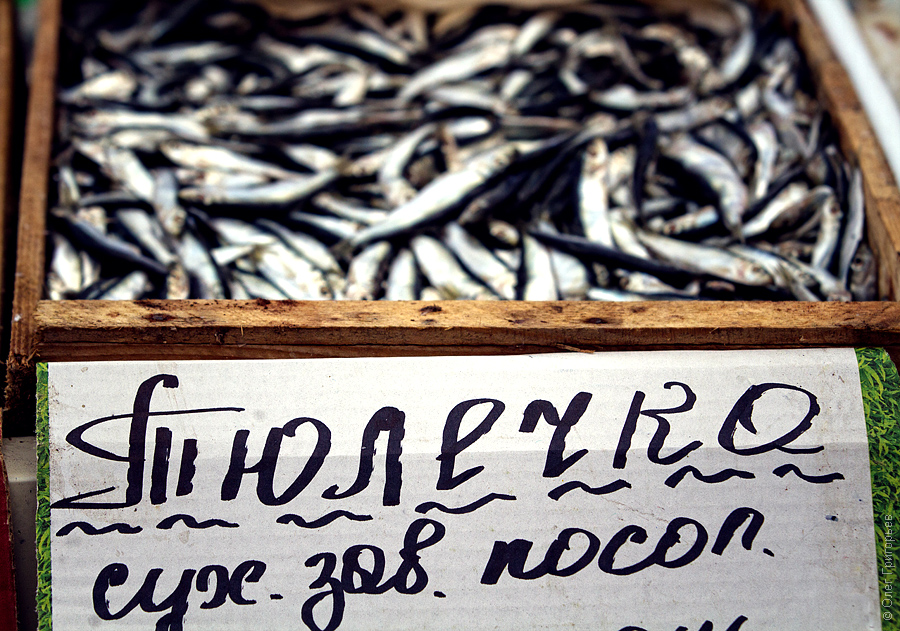 Тюлечка
суж. зов. посол.
© Олег Григорьев